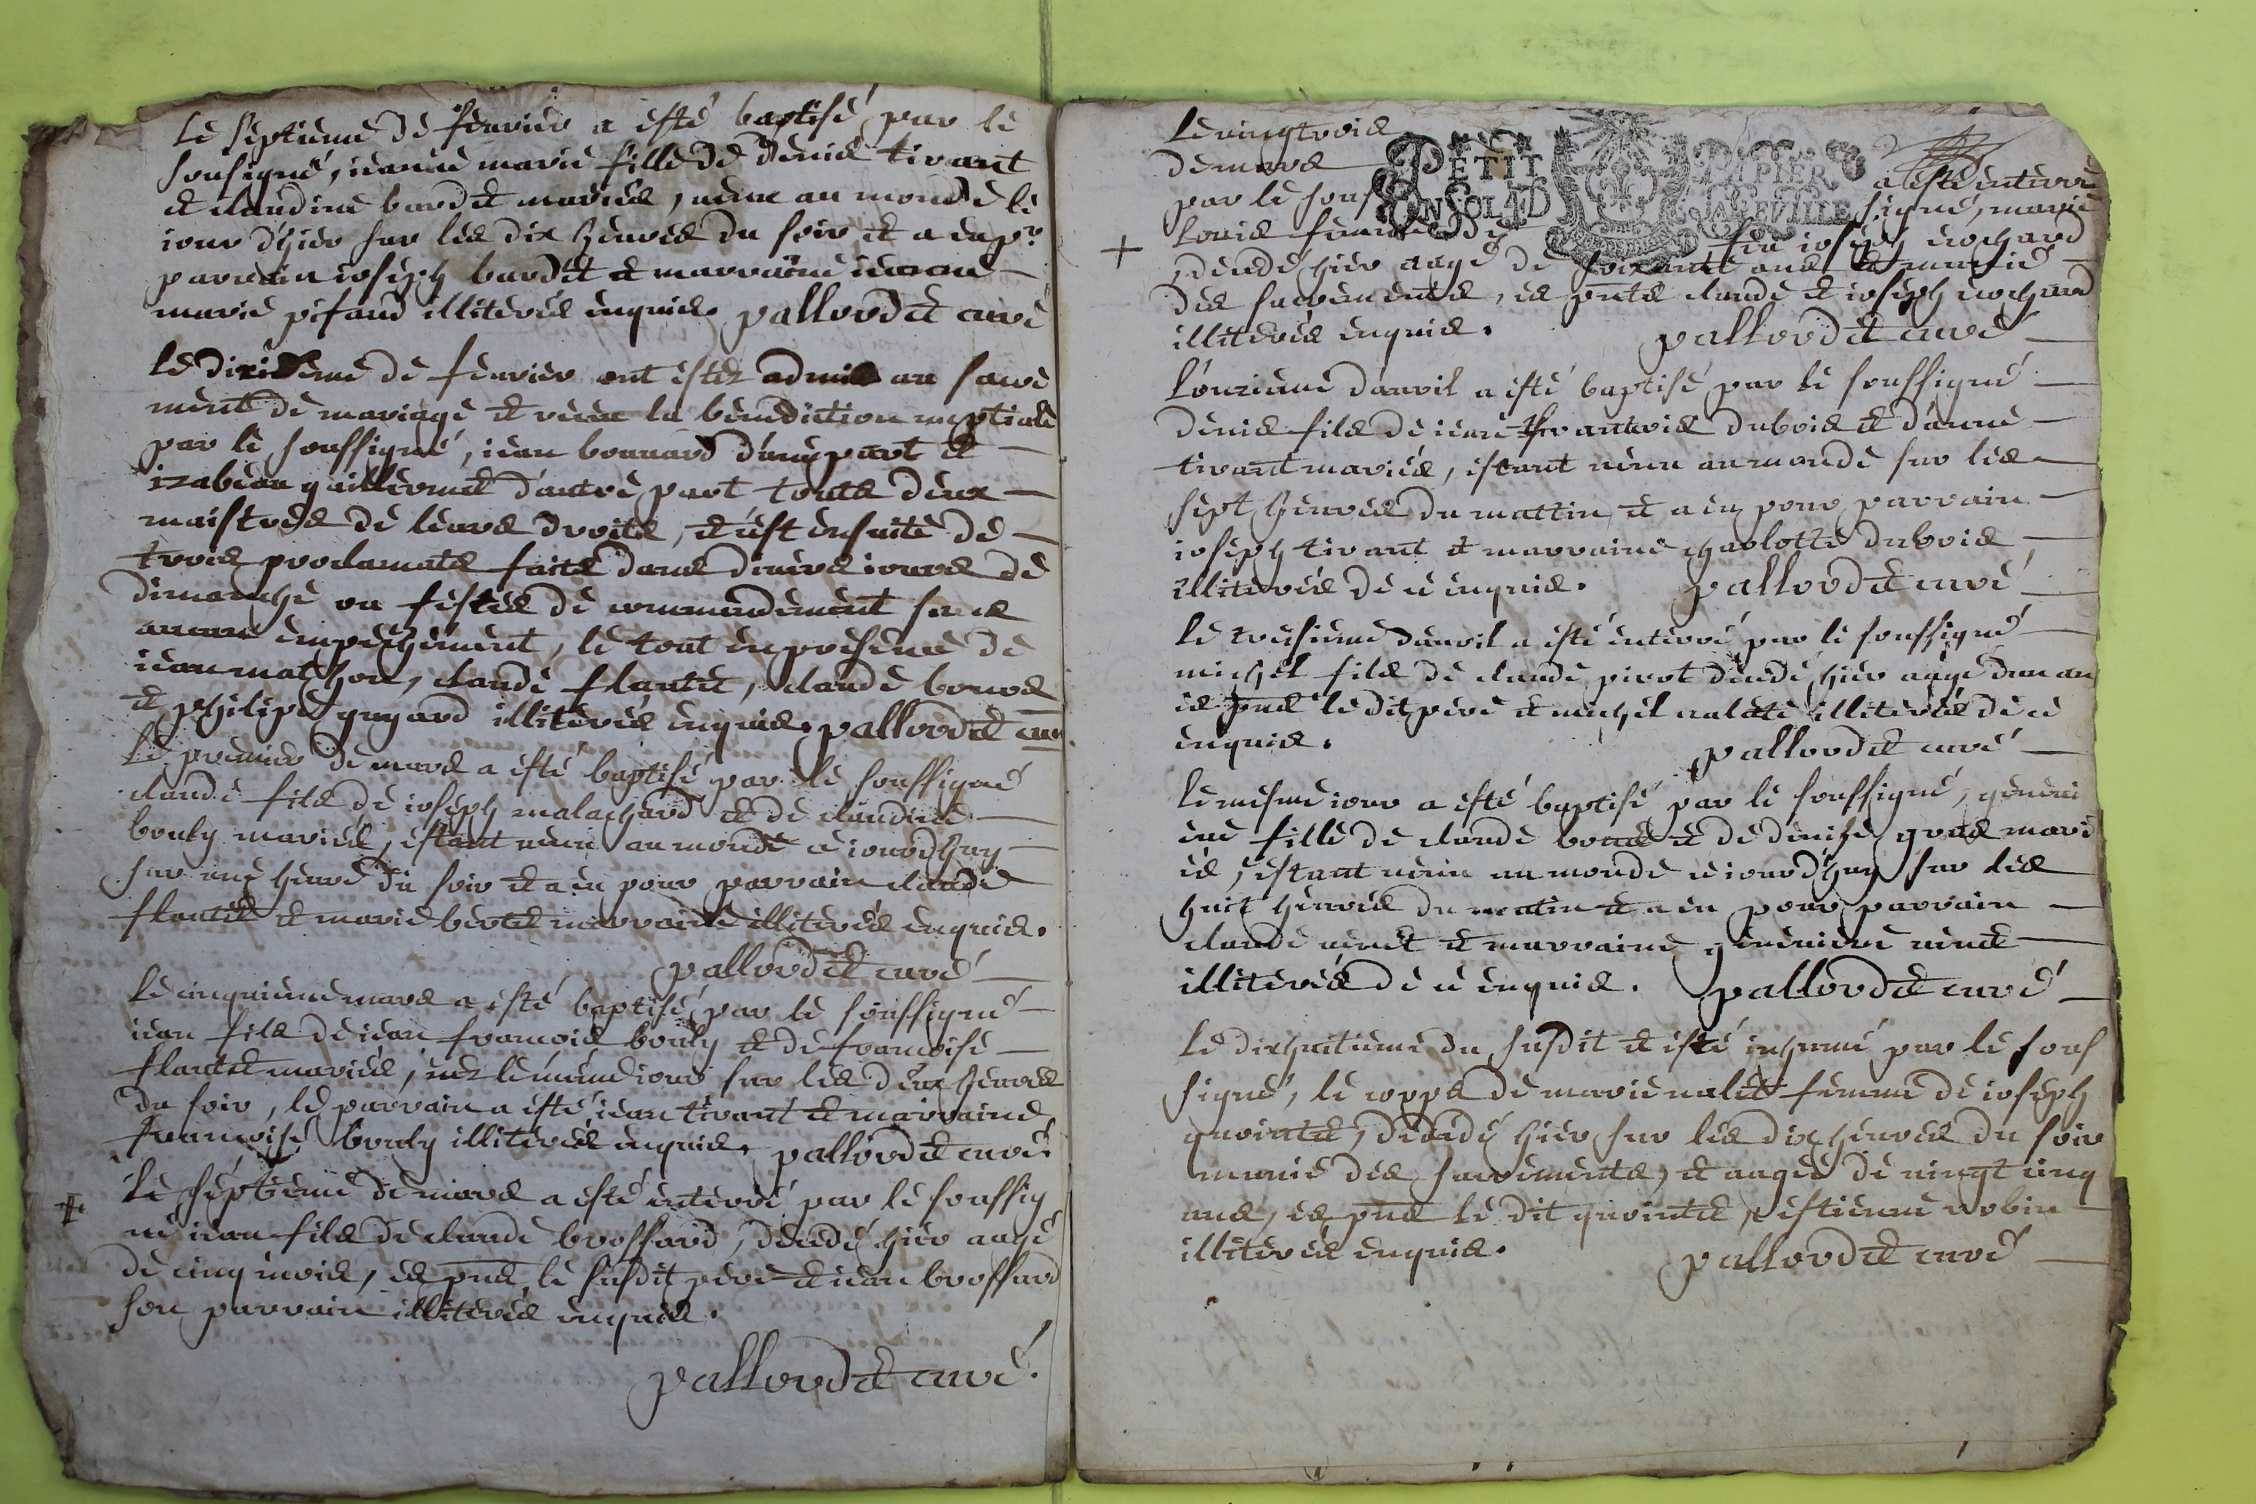 Le septieme de feuvrier a esté baptisé par le
sousigné, ieanne marie fille de denis tirant
et claudine bardet mariés, neue au monde le
iour d'hier sur les dix heures du soir et a eu pr
parrain ioseph bardet et marraine ieanne
marie pifaud illiterés enquis. pallordet curé
Le dixieme de feuvrier ont estez admis au sacre
ment de mariage et receu la benediction nuptiale
par le soussigné, iean bonnard d'une part et
izabeau guillermet d'autre part touts deux
maistres de leurs droits, et c'est ensuite de
trois proclamats faits dans divers iours de
dimanche ou festes de commendement sans
aucun empeschement, le tout en presence de
iean mathon, claude flantet, claude
et philipe guyard illiterés enquis. pallordet curé
Le premier de mars a esté baptisé par le soussigné
claude fils de ioseph malachard et de claudine
bouly mariés, estant neu au monde ce iourdhuy
sur une heure du soir et a eu pour parrain claude
flantet et marie bertet marraine illiterés enquis.
pallordet curé
Le cinquieme mars a esté baptisé par le soussigné
iean fils de iean francois bouly et de francoise
flantet mariés, nez le mesme iour sur les deux heures
du soir, le parrain a esté iean tirant et marraine
francoise bouly illiterés enquis. pallordet curé
Le septieme de mars a esté enterré par le soussig
né iean fils de claude brossard, decedé hier aagé
de cinq mois, es pnts le susdit pere et iean brossard
son parrain illiterés enquis.
pallordet curé.
Le vingtrois
de mars a esté enterré
par le sous signé, marie
PETIT PAPIER
louis femme de feu ioseph cochard
decedé hier aagé de soixante ans et munie
des sacrements, es pnts claude et ioseph cochard
illiterés enquis. pallordet curé
L'onzieme d'avril a esté baptisé par le soussigné
denis fils de iean francois dubois et d'anne
tirant mariés, estant neu au monde sur les
sept heures du mattin et a eu pour parrain
ioseph tirant et marraine charlotte dubois,
illiterés de ce enquis. pallordet curé
Le tresieme d'avril a esté enterré par le soussigné
michel fils de claude pirot decedé hier aagé d'un an
es pnts le dit pere et michel illiterés de ce
enquis. pallordet curé
Le mesme iour a esté baptisé par le soussigné, genevi
eve fille de claude et de denise gras mari
és, estant neue au monde ce iourdhuy sur les
huit heures du matin et a eu pour parrain
claude et marraine genevieve
illiterés de ce enquis. pallordet curé
Le dixhuitieme du susdit et esté inhumé par le sous
signé, le corps de marie nalet femme de ioseph
quointet, decedé hier sur les dix heures du soir
munie des sacrements, et aagée de vingt cinq
ans, es pnts le dit quointet, estienne robin
illiterés enquis. pallordet curé